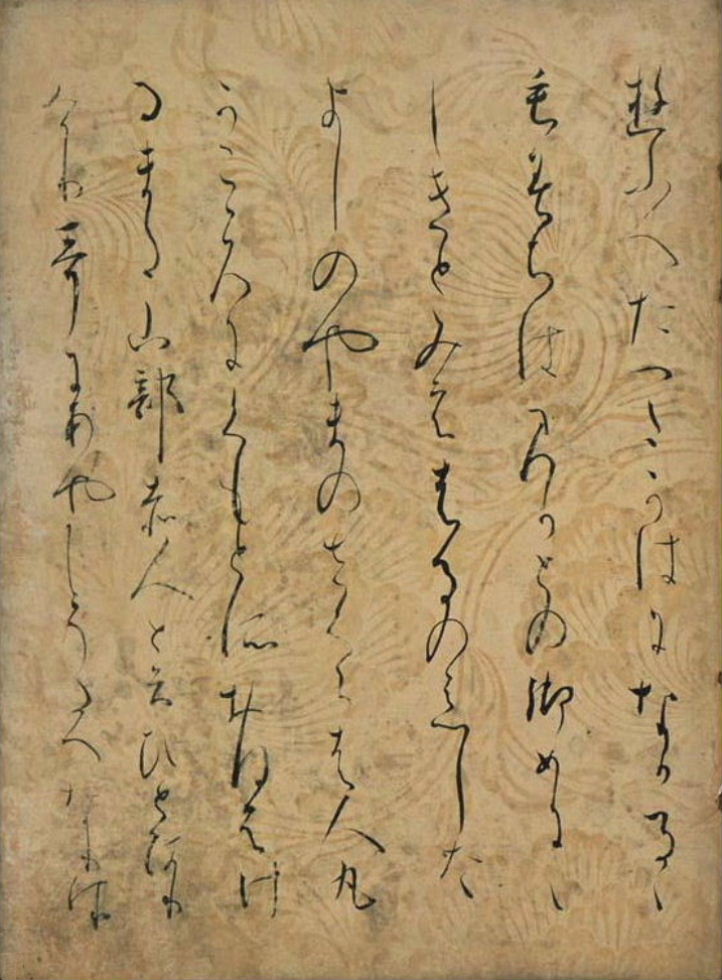 ゆふへたつたかはになかるゝ
もみちはみかとの御めにゝ
しきとみえはるのあした
よしのやまのさくらは人丸
かこゝろにくもとそおほえけ
るまた山部赤人と云ひとあり
けり哥にあやしうたへなり